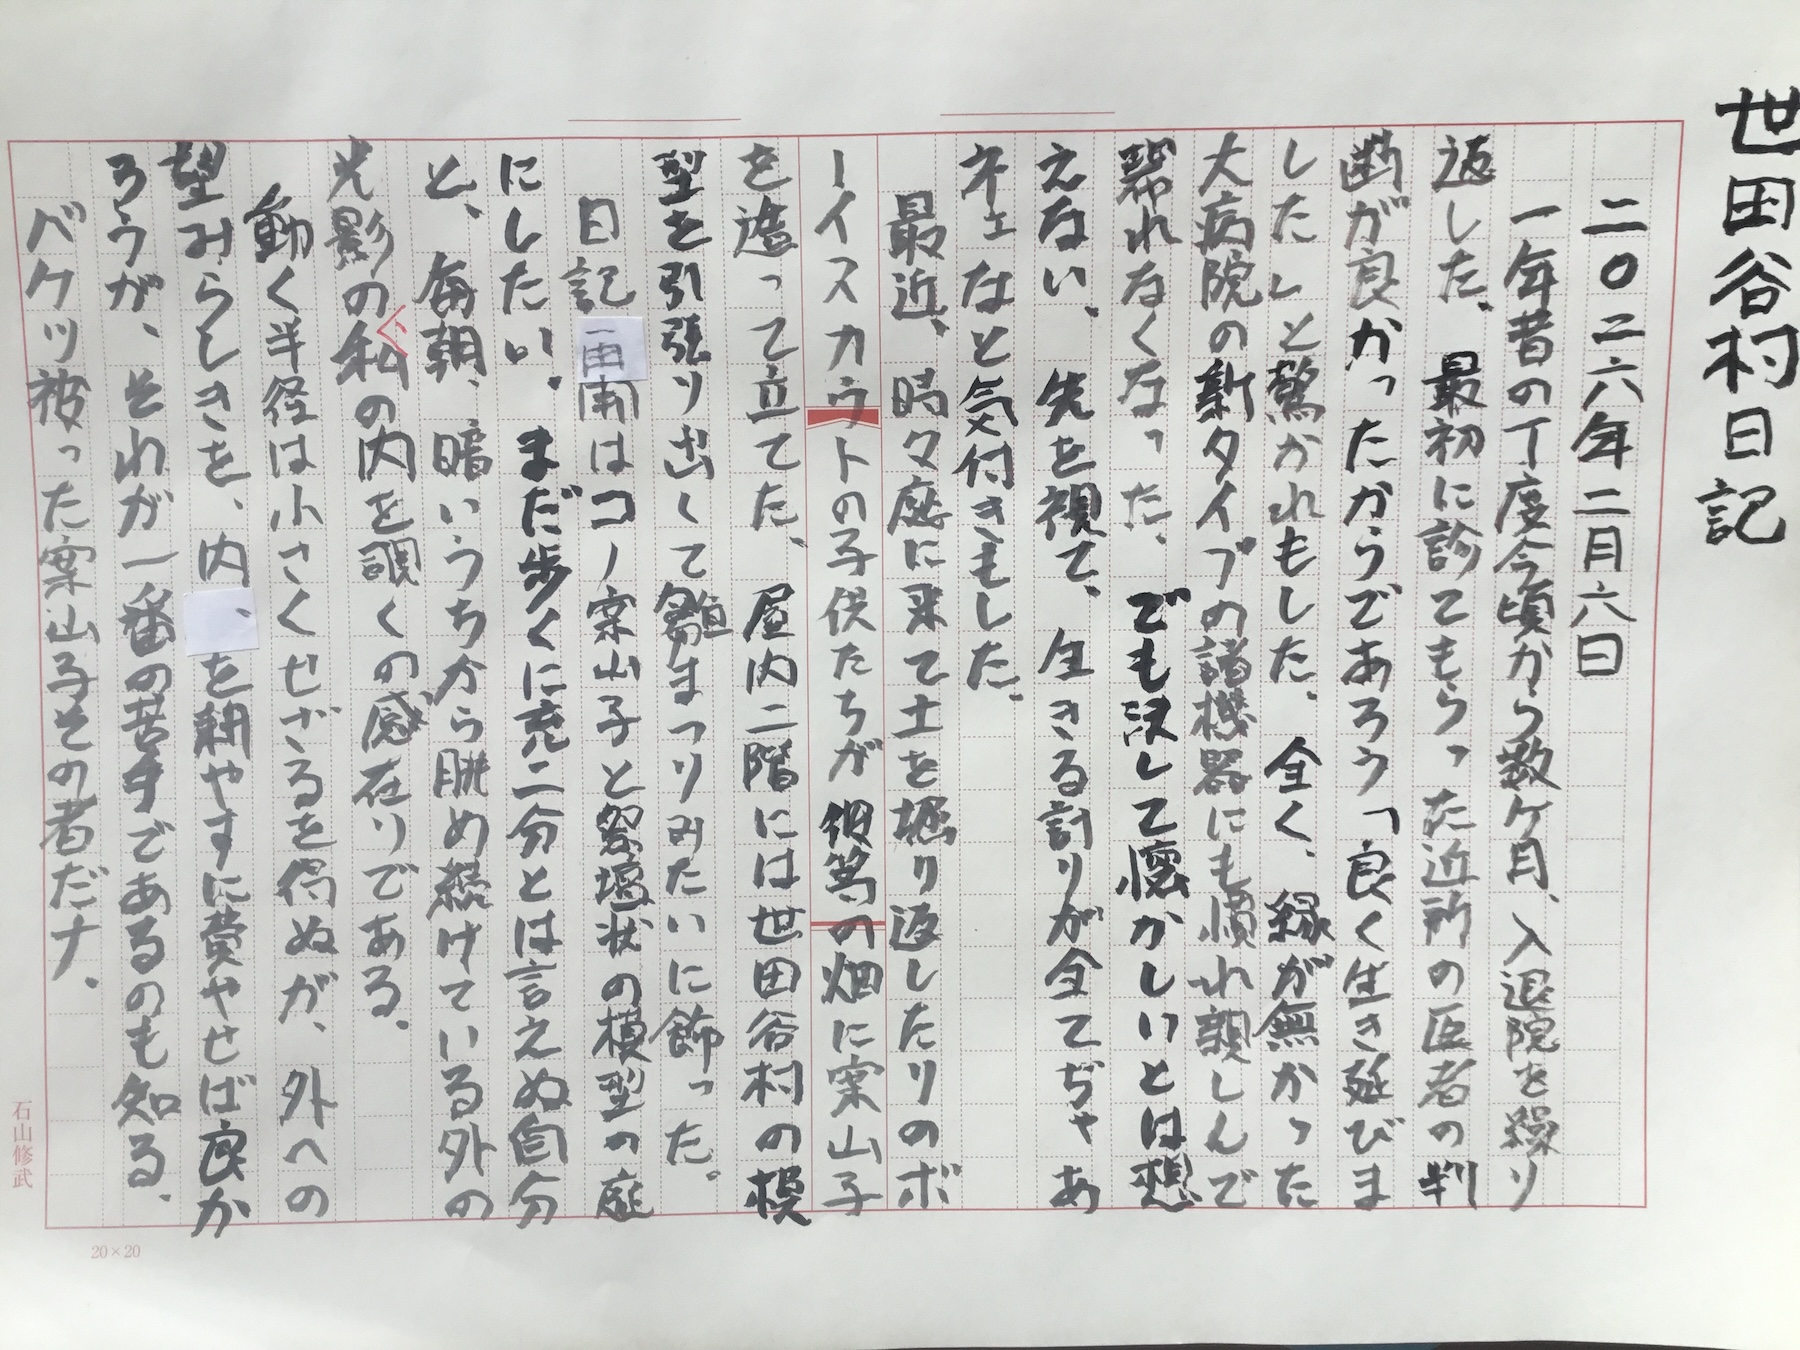 世田谷村日記
二〇二六年二月六日
一年昔の丁度今頃から数ヶ月、入退院を繰り
返した、最初に診てもらった近所の医者の判
断が良かったからであろう「良く生き延びま
した」と驚かれもした、全く、縁が無かった
大病院の新タイプの諸機器にも慣れ親しんで
されなくなった、でも決して懐かしいとは想
えない、先を視て、生きる計りが全てぢゃあ
ネェなと気付きもした、
最近、時々庭に来て土を掘り返したりのボ
ーイスカウトの子供たちが の畑に案山子
を造って立てた、屋内二階には世田谷村の模
型を引張り出して雛まつりみたいに飾った。
日記 はコノ案山子と祭壇状の模型の庭
にしたい、まだ歩くに充二分とは言えぬ自分
と、毎朝、暗いうちから眺め続けている外の
光影の私の内を覗くの感在りである、
動く半径は小さくせざるを得ぬが、外への
望みらしきを、内、を耕やすに費やせば良か
ろうが、それが一番の苦手であるのも知る、
バケツ被った案山子その者だナ、
石山修武
20×20